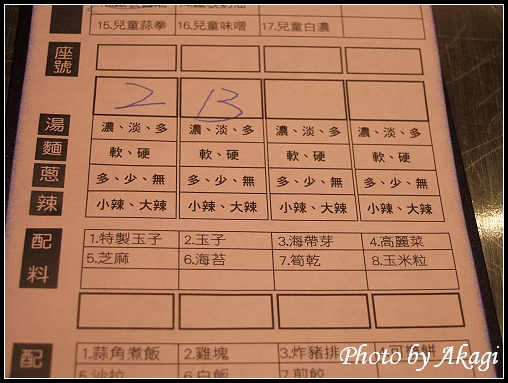 15.兒童蒜拳 16.兒童味噌 17.兒童白濃
座號
2 13
湯 濃、淡、多 濃、淡、多 濃、淡、多 濃、淡、多
麵 軟、硬 軟、硬 軟、硬 軟、硬
蔥 多、少、無 多、少、無 多、少、無 多、少、無
辣 小辣、大辣 小辣、大辣 小辣、大辣 小辣、大辣
配料 1.特製玉子 2.玉子 3.海帶芽 4.高麗菜
5.芝麻 6.海苔 7.筍乾 8.玉米粒
配 1.蒜角煮飯 2.雞塊 3.炸豬排 4.可餅
5.沙拉 6.白飯 7.煎餃
Photo by Akagi